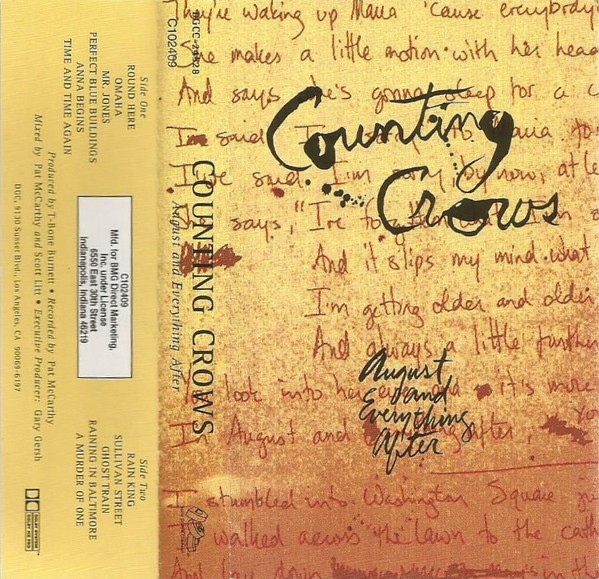 Side One
ROUND HERE
OMAHA
MR. JONES
PERFECT BLUE BUILDINGS
ANNA BEGINS
TIME AND TIME AGAIN
C102409
Mfd. for BMG Direct Marketing,
Inc. under License
6550 East 30th Street
Indianapolis, Indiana 46219
Side Two
RAIN KING
SULLIVAN STREET
GHOST TRAIN
RAINING IN BALTIMORE
A MURDER OF ONE
Produced by T-Bone Burnett • Recorded by Pat McCarthy
Mixed by Pat McCarthy and Scott Litt • Executive Producer: Gary Gersh
DGC, 9130 Sunset Blvd., Los Angeles, CA 90069-6197
DOLBY SYSTEM
DOLBY HX PRO
C102409
COUNTING CROWS
August and Everything After
Counting
Crows
August
and
Everything
After
They're waking up Maria 'cause everybody
makes a little motion with her head
And says she's gonna sleep for a
said
said I'm by now, at le
says, "I're
And it slips my mind what
I'm getting older and older
And always a little further
look into her it's more
In August and after,
I stumbled into Washington Square
walked across the lawn to the cath
down in th